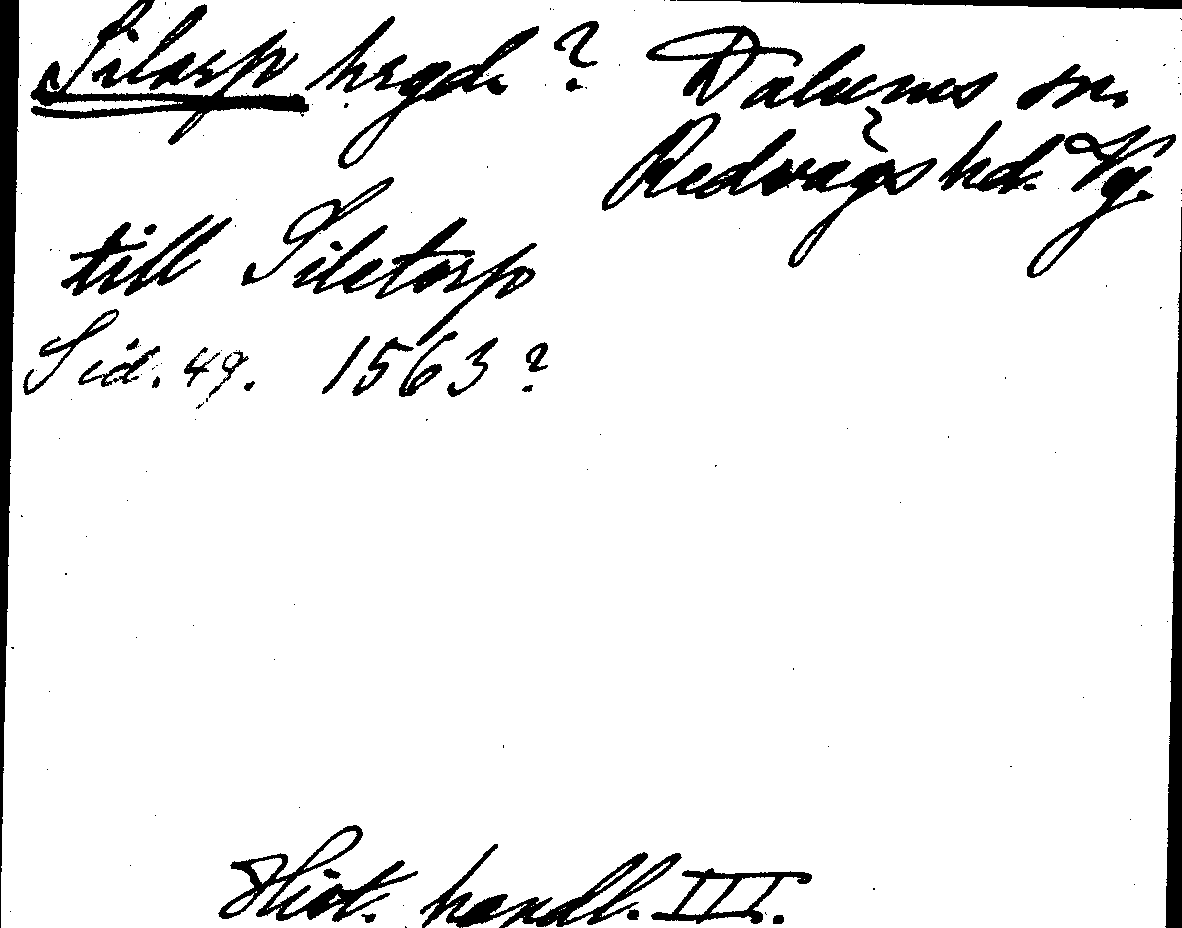 Silarp hrgd. ? Dalums sn.
Redvägs hd. Vg.
till Siletorp
Sid. 49. 1563 ?
Hist. handl. III.